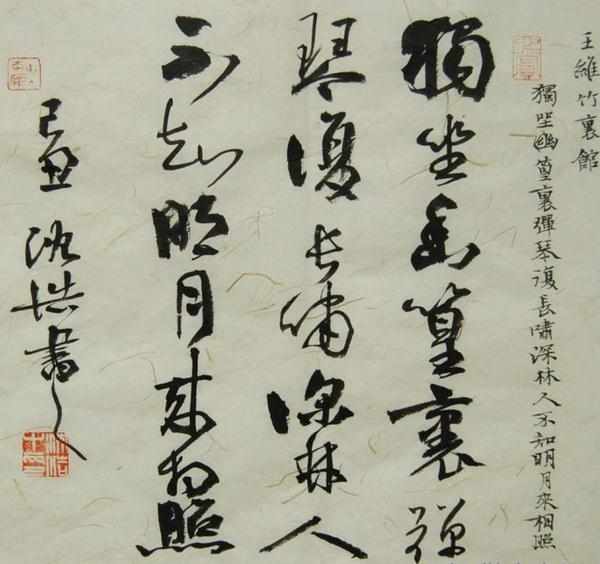 王維竹裏館
獨坐幽篁裏彈琴復長嘯深林人不知明月來相照
獨坐幽篁裏彈
琴復長嘯深林人
不知明月來相照
己丑沈浩書